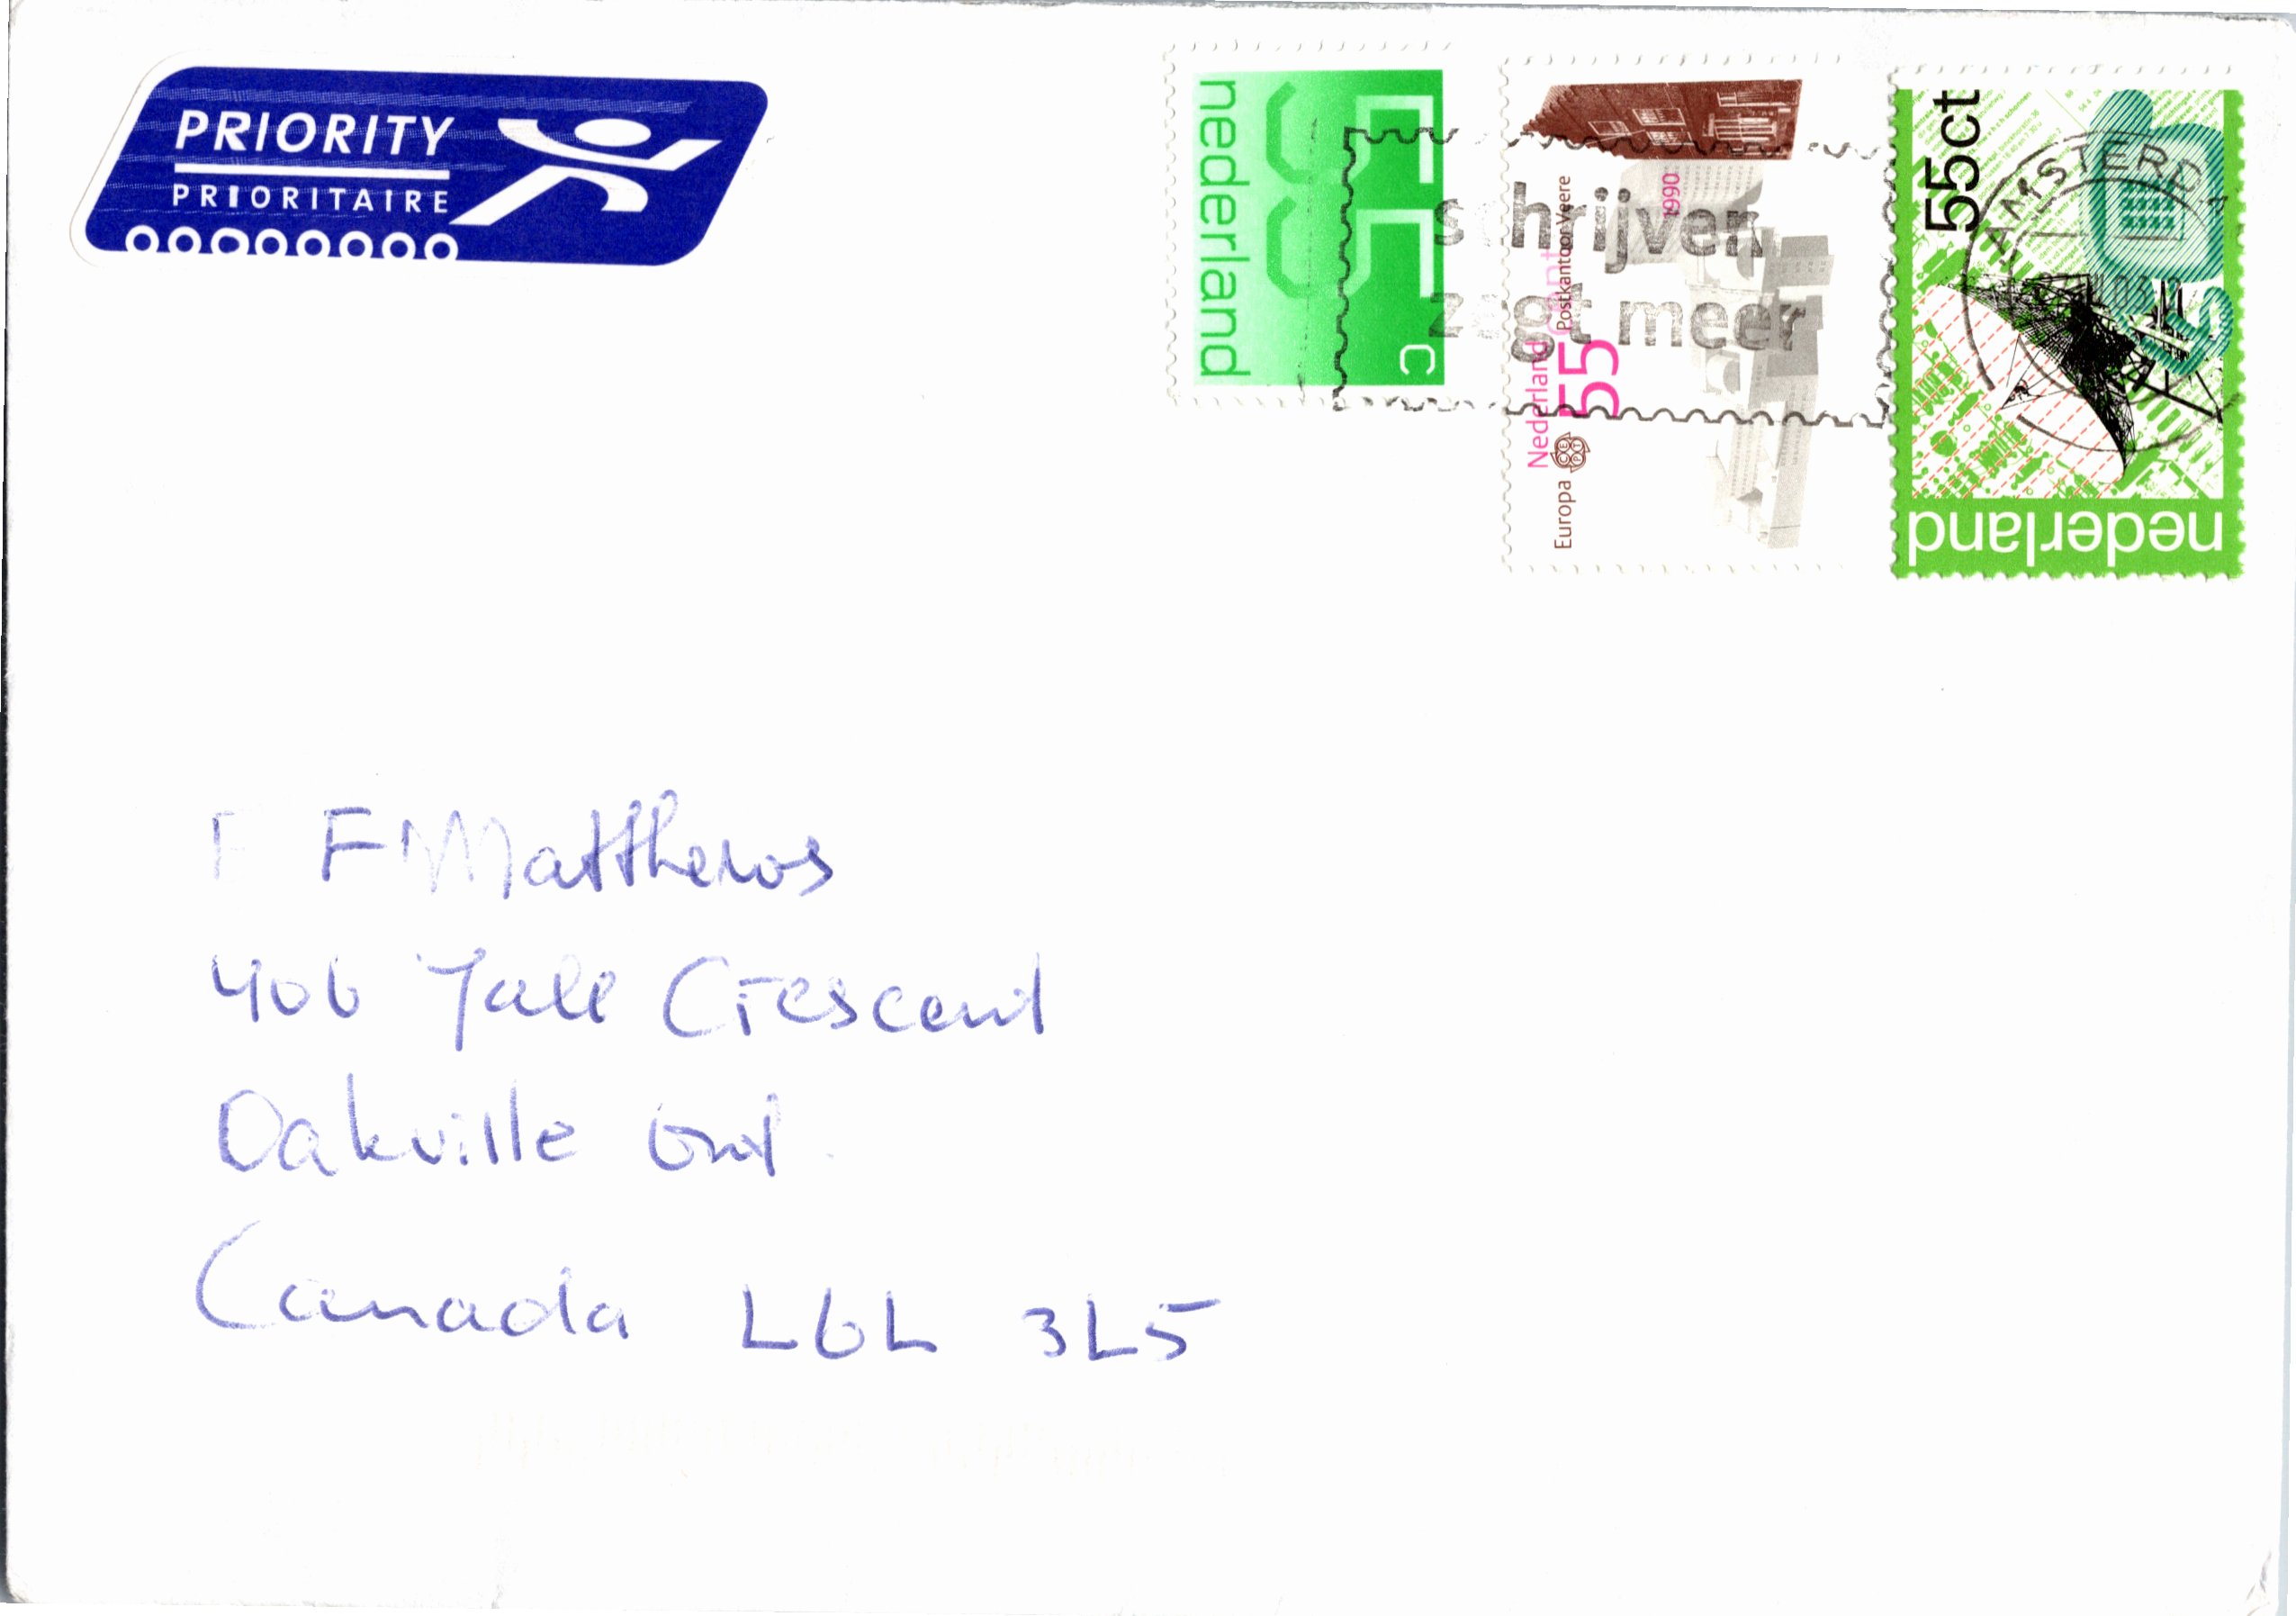 PRIORITY
PRIORITAIRE
nederland
55
c
Europa CEPT
Nederland
55 cent
Postkantoor Veere
1990
schrijven
zegt meer
55ct
nederland
AMSTERDA
F F Matthews
406 Yale Crescent
Oakville Ont
Canada L6L 3L5